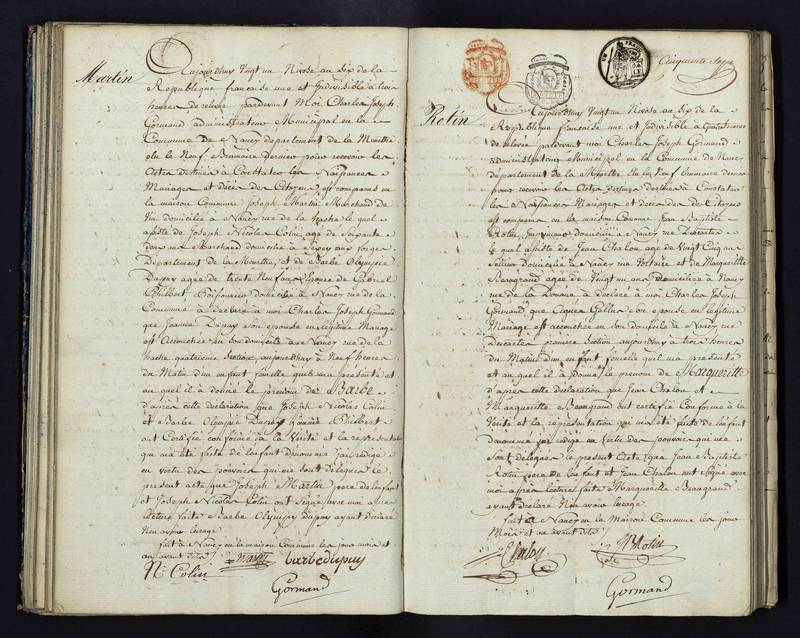 Martin
Aujourdhuy Vingt un Nivose an Six de la
Republique francaise une et Indivisible à trois
heures de relevée pardevant Moi Charles Joseph
Gormand administrateur Municipal en la
Commune De Nancy département de la Meurthe
elu le Neuf Brumaire dernier pour recevoir les
Actes destinés à Constater les Naissances
Mariages et décès des Citoyens, est comparu en
la maison Commune Joseph Martin Marchand de
Vin domicilié à Nancy rue de la hache le quel
assisté de Joseph Nicolas Colin agé de Soixante
ans Marchand domicilié à aux forges
Département de la Meurthe, et de Barbe Olympie
Dupuy agée de trente Neuf ans Epouse de Gabriel
Philbert domicilié à Nancy rue de la
Commune à declaré à moi Charles Joseph Gormand
que Jeanne Dupuy son epouse en légitime Mariage
est accouchée en son domicile à Nancy rue de la
hache quatrieme Section aujourdhuy à Neuf heures
du Matin d'un enfant femelle qu'il m'a presenté et
au quel il a donné le prenom de Barbe
d'après cette déclaration que Joseph Nicolas Colin
et Barbe Olympie Dupuy femme Philbert
ont Certifié conforme à la Vérité et la representation
qui m'a été faite de l'enfant dénommé j'ai redigé
en vertu des pouvoirs qui me sont délégués le
present acte que Joseph Martin pere de l'enfant
et Joseph Nicolas Colin ont Signé avec moi après
lecture faite Barbe Olympie Dupuy ayant déclaré
fait à Nancy en la maison Commune les jour mois et
an avant dits
Martin barbe dupuy
N. Colin
Gormand
Cinquante Sept
Rotin
Aujourdhuy Vingt un Nivose an Six de la
Republique francaise une et Indivisible à quatre heures
de relevée pardevant moi Charles Joseph Gormand
administrateur Municipal en la Commune de Nancy
département de la Meurthe elu le Neuf Brumaire dernier
pour recevoir les Actes destinés à Constater
les Naissances Mariages et décès des Citoyens
est comparu en la maison Commune Jean Baptiste
Rotin domicilié à Nancy rue Descartes
le quel assisté de Jean Chalon agé de Vingt Cinq ans
Sellier domicilié à Nancy rue Voltaire et de Margueritte
Beaugrand agée de Vingt un ans domiciliée à Nancy
rue de la Douane à déclaré à moi Charles Joseph
Gormand que Gallus son epouse en légitime
Mariage est accouchée en son domicile à Nancy rue
Descartes premiere Section aujourdhuy à trois heures
du Matin d'un enfant femelle qu'il m'a presenté
et au quel il a donné le prenom de Margueritte
d'après cette déclaration que Jean Chalon et
Marguerite Beaugrand ont certifié Conforme à la
Verité et la représentation qui m'a été faite de l'enfant
dénommé j'ai redigé en vertu des pouvoirs qui me
sont délégués le présent Acte que Jean Baptiste
Rotin pere de l'enfant et Jean Chalon ont Signé avec
moi après lecture faite Marguerite Beaugrand
ayant déclaré
fait à Nancy en la Maison Commune les jour
Mois et an avant dits
Chalon JB Rotin
Gormand